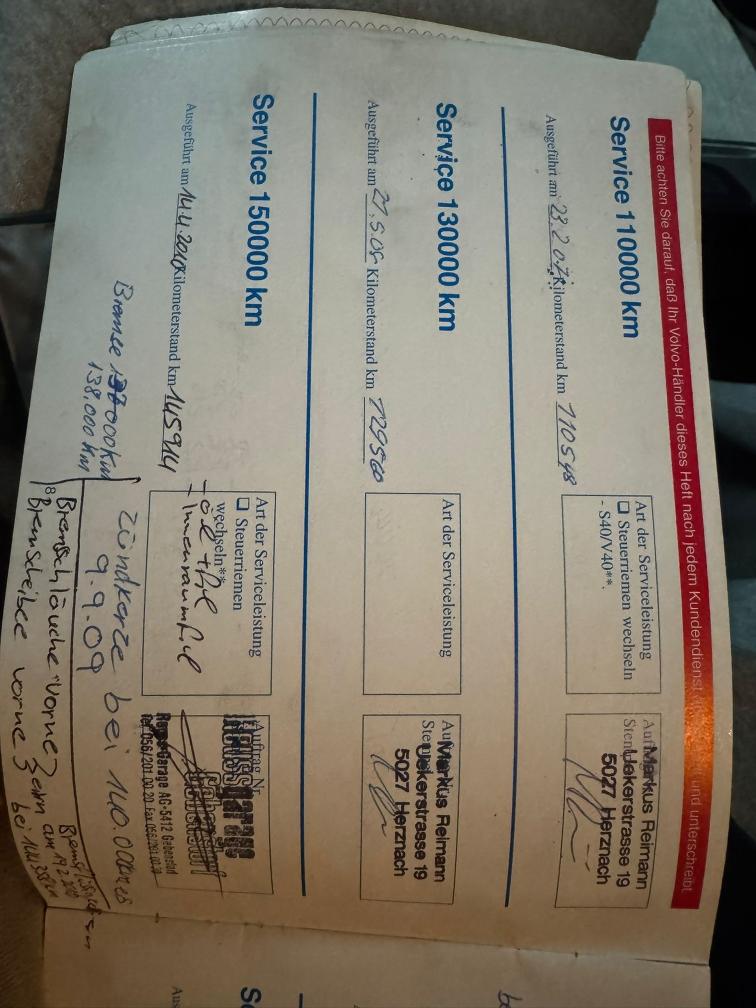 Bitte achten Sie darauf, daß Ihr Volvo-Händler dieses Heft nach jedem Kundendienst und unterschreibt
Service 110000 km
Ausgeführt am 23.2.07 Kilometerstand km 110548
Art der Serviceleistung
❑ Steuerriemen wechseln
- S40/V40**.
Markus Reimann
Uekerstrasse 19
5027 Herznach
Service 130000 km
Ausgeführt am 27.5.08 Kilometerstand km 129560
Art der Serviceleistung
Markus Reimann
Uekerstrasse 19
5027 Herznach
Service 150000 km
Ausgeführt am 14.4.2010 Kilometerstand km 145914
Art der Serviceleistung
❑ Steuerriemen
wechseln**
- Innenraumfil
Auftrag Nr.
Reussgarage
Gebenstorf
Reuss-Garage AG-5412 Gebenstorf
Tel. 056/201 00 20
Bremse
138.000 km
Zündkerze bei 140.000
9.9.09
Bremschläuche vorne
Bremscheibe vorne